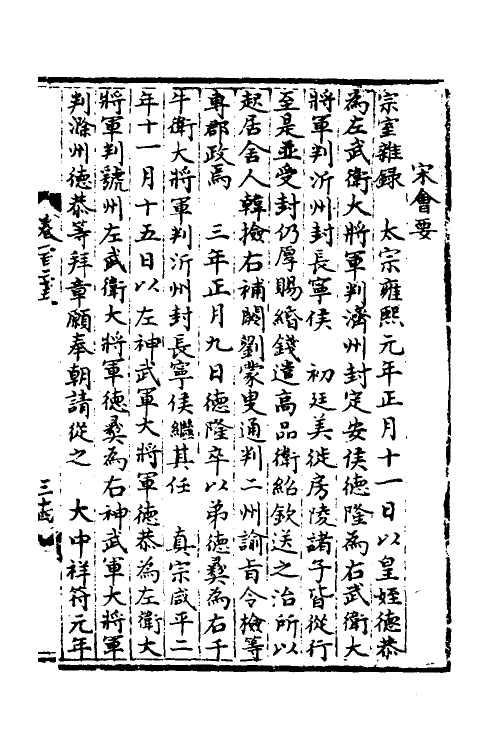 宋會要
宗室雜錄　太宗雍熙元年正月十一日以皇姪德恭
為左武衛大將軍判濟州封定安侯德隆為右武衛大
將軍判沂州封長寧侯　初廷美徙房陵諸子皆從行
至是並受封仍厚賜緡錢遣高品衛紹欽送之治所以
起居舍人韓檢右補闕劉蒙叟通判二州諭旨令檢等
專郡政焉　三年正月九日德隆卒以弟德彝為右千
牛衛大將軍判沂州封長寧侯繼其任　真宗咸平二
年十一月十五日以左神武軍大將軍德恭為左衛大
將軍判虢州左武衛大將軍德彝為右神武軍大將軍
判滁州德恭等拜章願奉朝請從之　大中祥符元年